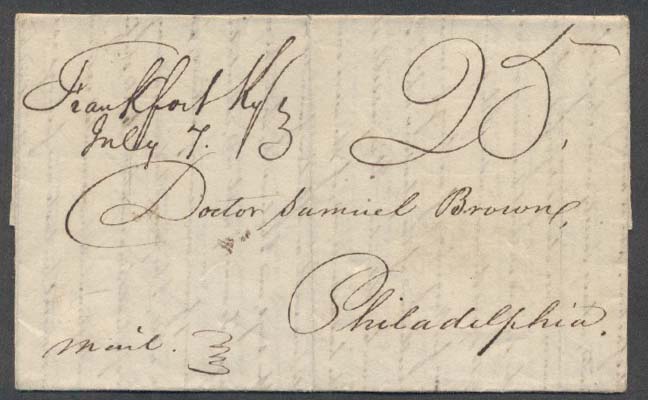 Frankfort Ky
July 7.
25,
Doctor Samuel Brown,
Philadelphia.
mail.